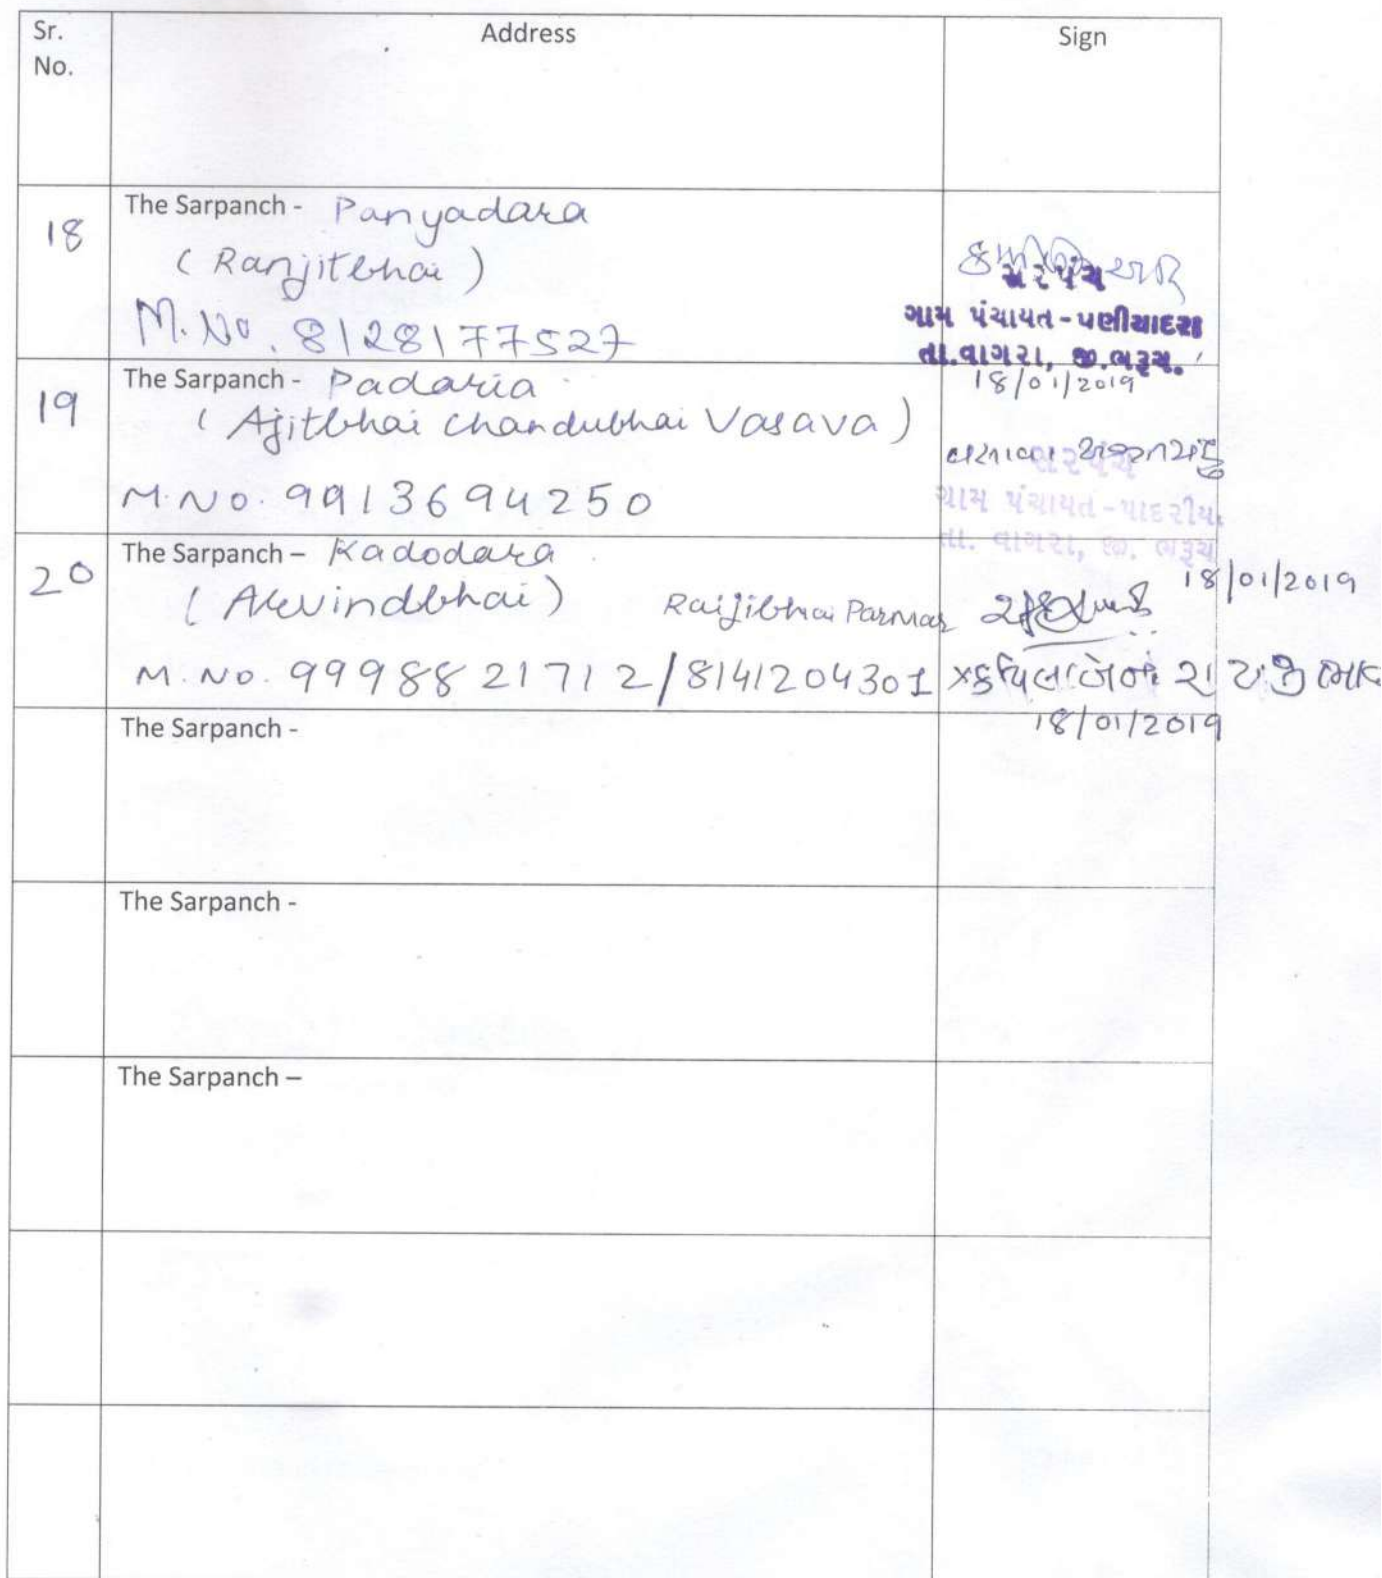 Sr. No.
Address
Sign
18
The Sarpanch - Panyadara
(Ranjitbhai)
M. No. 8128177527
સરપંચ
ગામ પંચાયત - પણીયાદરા
તા. વાગરા, જી. ભરૂચ.
18/01/2019
19
The Sarpanch - Padaria
(Ajitbhai Chandubhai Vasava)
M. No. 9913694250
સરપંચ
ગામ પંચાયત - પાદરીયા
તા. વાગરા, જી. ભરૂચ
18/01/2019
20
The Sarpanch – Kadodara
(Arvindbhai) Raijibhai Parmar
M. No. 9998821712/8141204301
18/01/2019
The Sarpanch -
The Sarpanch -
The Sarpanch –